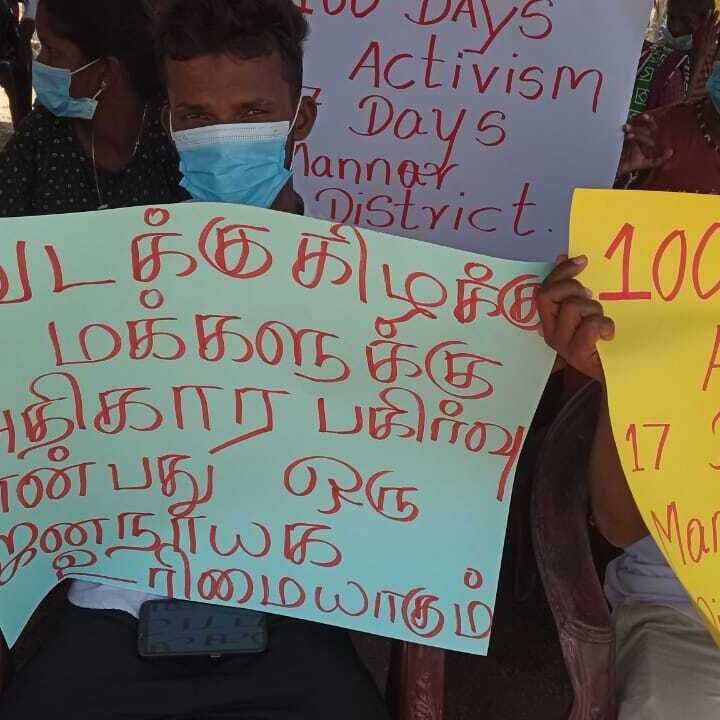 100 DAYS
Activism
7 Days
Mannar
District.
வடக்கு கிழக்கு
மக்களுக்கு
அதிகார பகிர்வு
என்பது ஒரு
ஜனநாயக
உரிமையாகும்
100
17